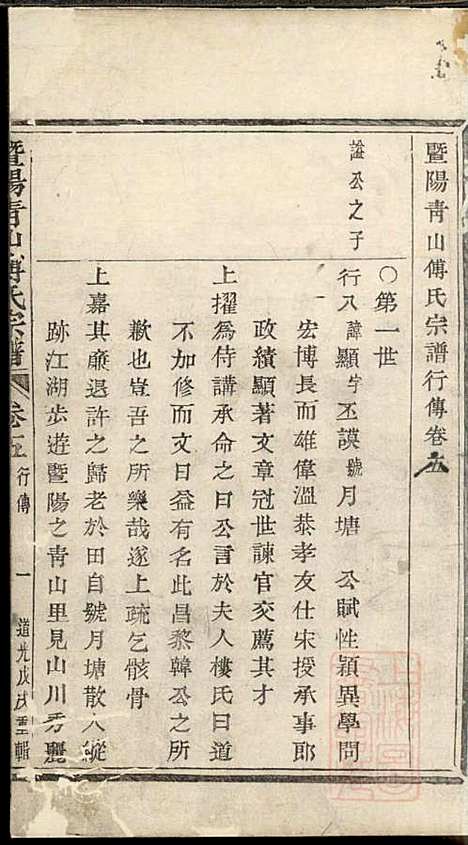 暨陽青山傅氏宗譜行傳卷五
謚公之子
○第一世
行八諱顯字丕謨號月塘 公賦性穎異學問
宏博長而雄偉溫恭孝友仕宋授承事郎
政績顯著文章冠世諫官交薦其才
上擢爲侍講承命之日公言於夫人樓氏曰道
不加修而文日益有名此昌黎韓公之所
歉也豈吾之所樂哉遂上疏乞骸骨
上嘉其廉退許之歸老於田自號月塘散人縱
跡江湖步遊暨陽之青山里見山川秀麗
暨陽青山傅氏宗譜 卷五 行傳 一 道光戊戌重輯